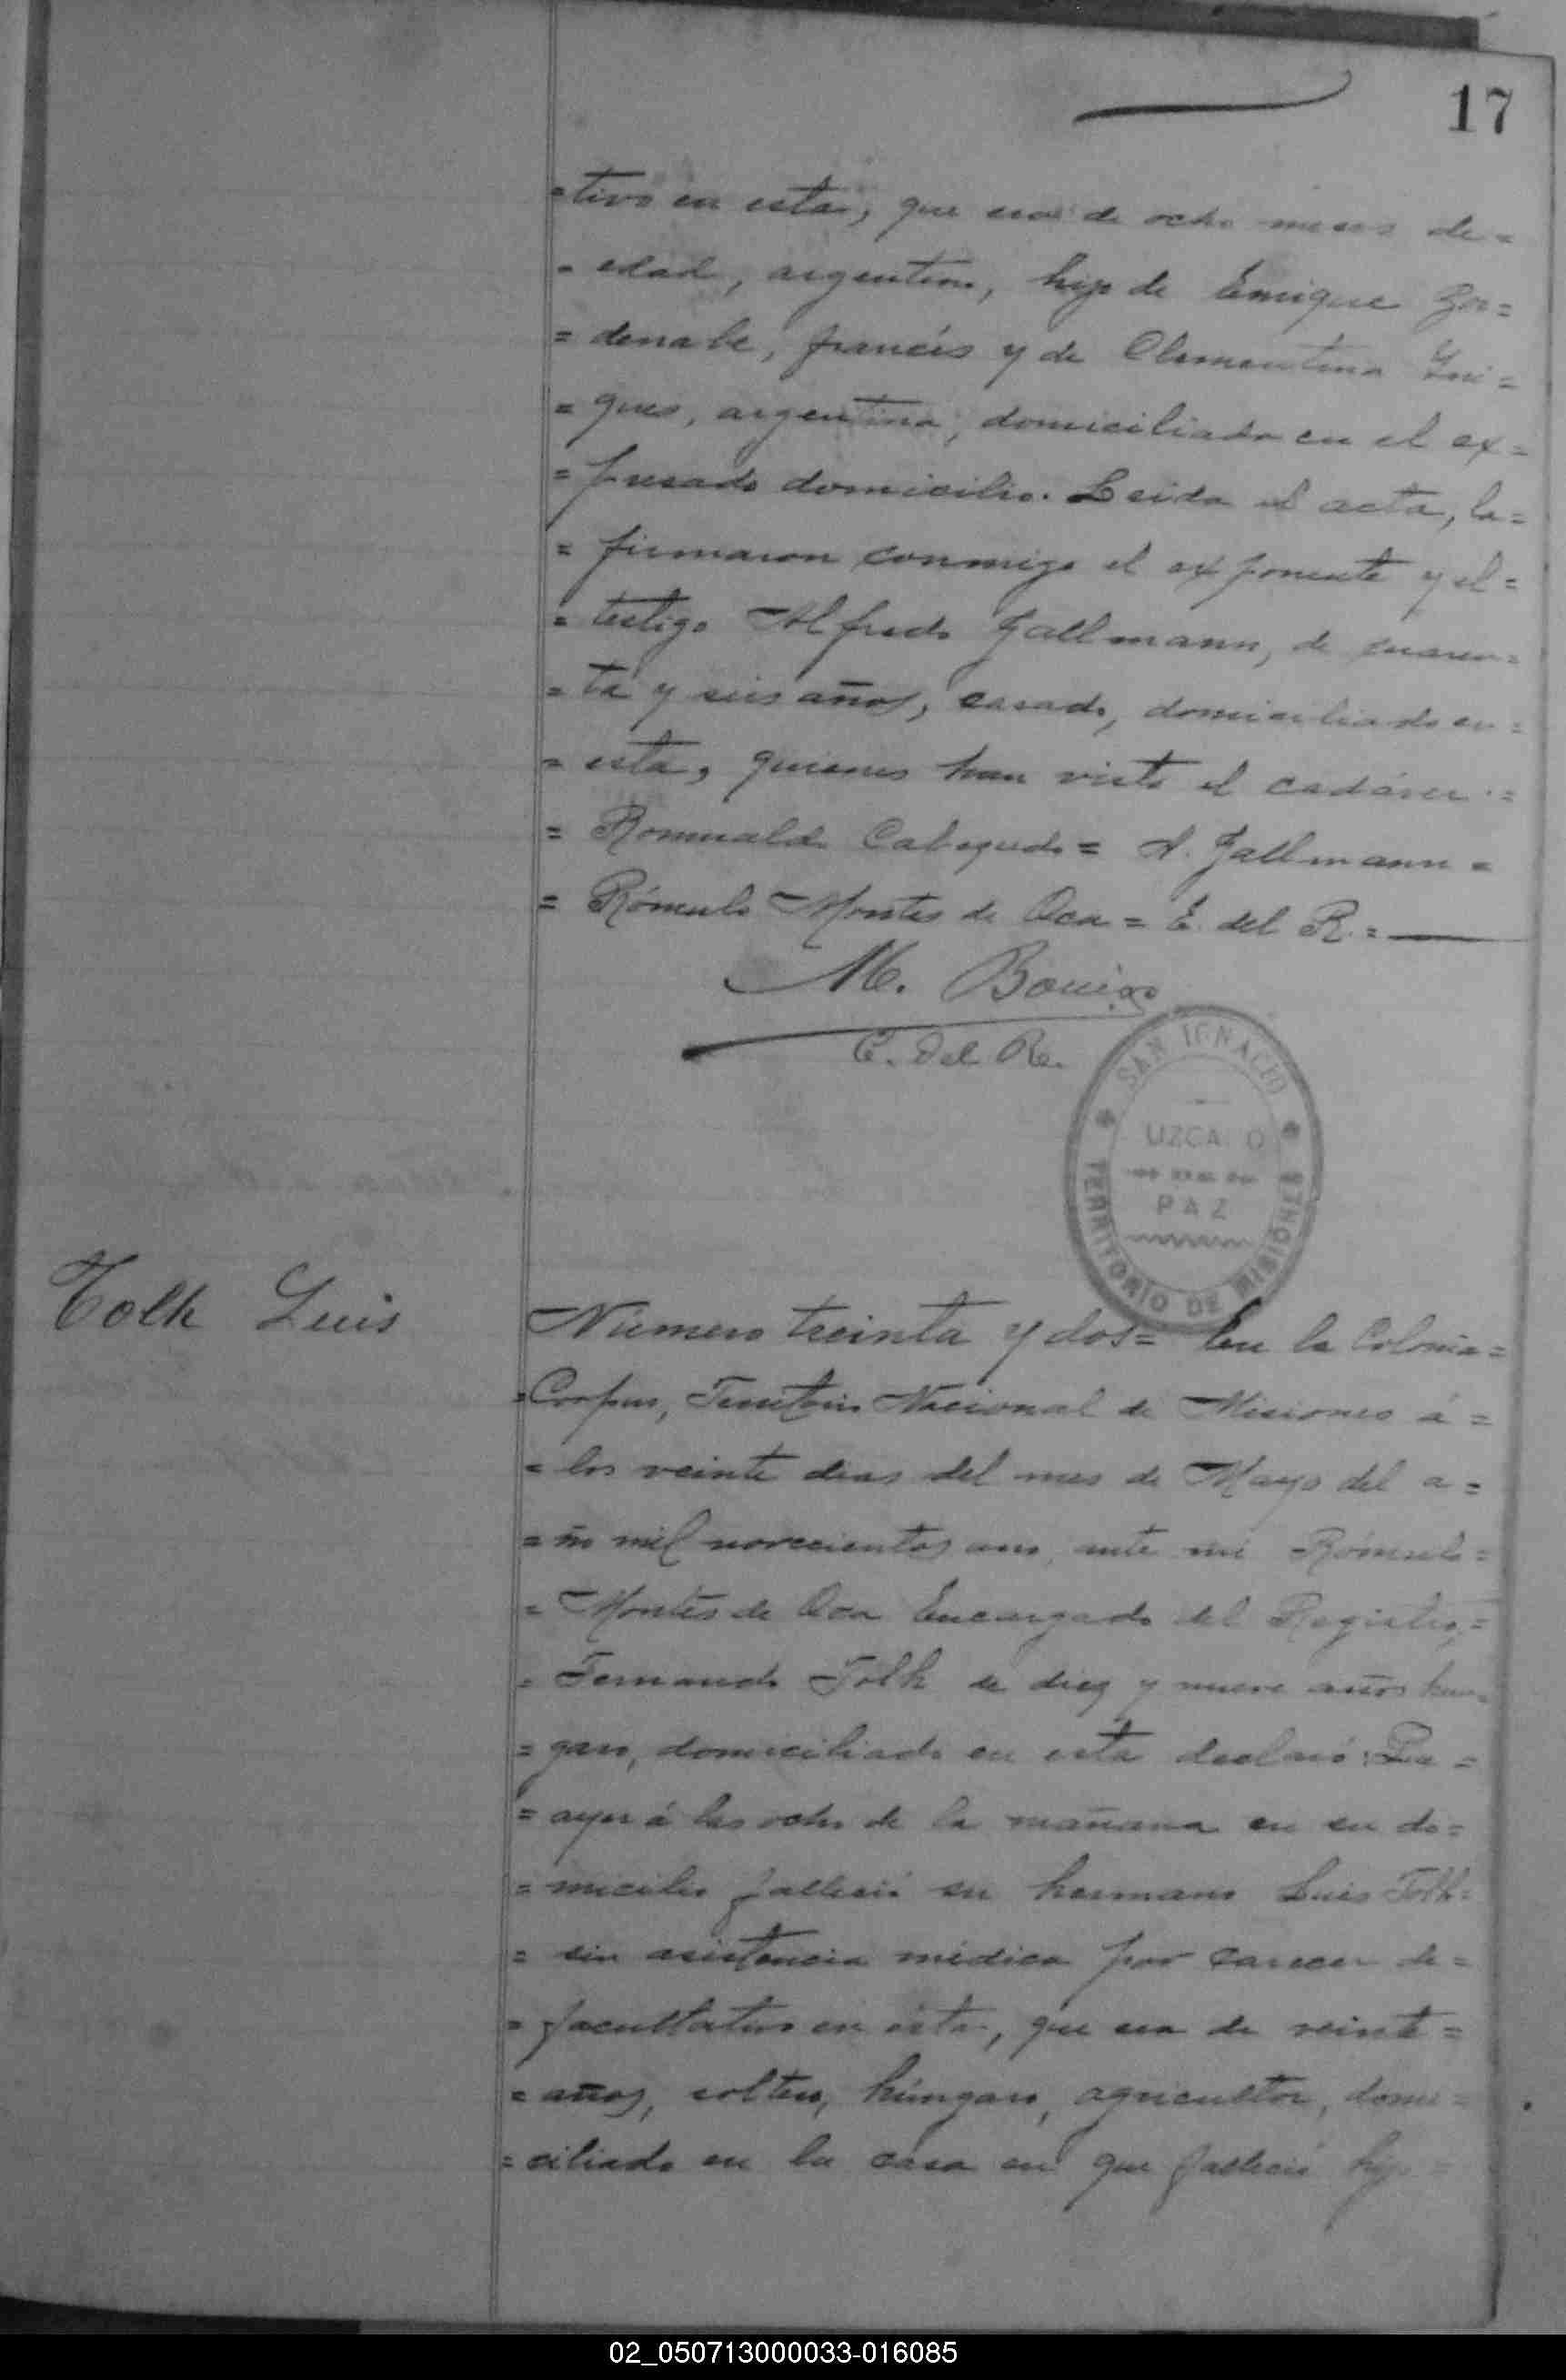 17
=tivo en esta, que era de ocho meses de=
= edad, argentino, hijo de Enrique
= denabe, francés y de Clementina
= gues, argentina, domiciliada en el ex=
= presado domicilio. Leida el acta, la=
= firmaron conmigo el exponente y el=
= testigo Alfredo Fallmann, de cuaren=
= ta y seis años, casado, domiciliado en=
= esta, quienes han visto el cadáver.=
= Romualdo = A. Fallmann =
= Rómulo Montes de Oca = E. del R.=
M.
E. del R.
SAN IGNACIO
PAZ
TERRITORIO DE MISIONES
Tolk Luis
Número treinta y dos= En la Colonia=
=Corpus, Territorio Nacional de Misiones á=
= los veinte dias del mes de Mayo del a=
=ño mil novecientos uno, ante mi Rómulo=
= Montes de Oca Encargado del Registro,=
= Fernando Tolk de diez y nueve años hun=
= garo, domiciliado en esta declaró: Que=
= ayer á las ocho de la mañana en su do=
= micilio falleció su hermano Luis Tolk=
= sin asistencia médica por carecer de=
= facultativo en ésta, que era de veinte=
= años, soltero, húngaro, agricultor, domi=
= ciliado en la casa en que falleció hijo=
02_050713000033-016085